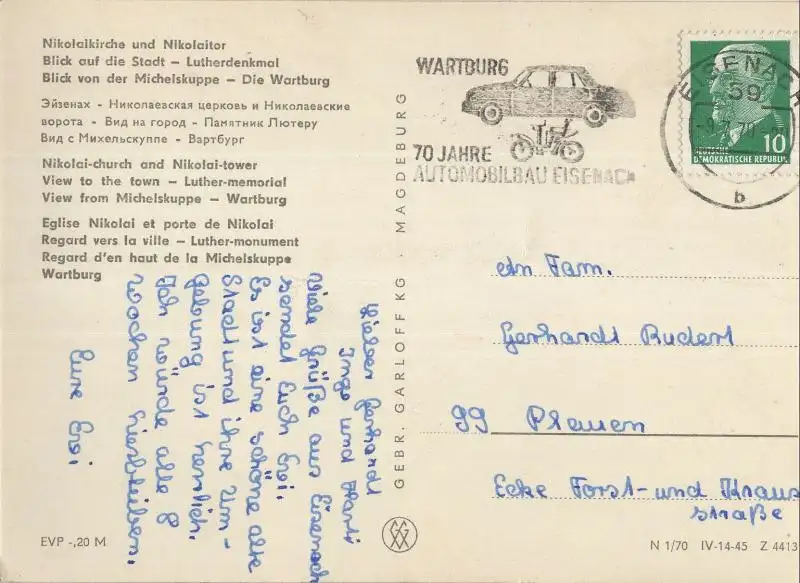 Nikolaikirche und Nikolaitor
Blick auf die Stadt – Lutherdenkmal
Blick von der Michelskuppe – Die Wartburg
Эйзенах - Николаевская церковь и Николаевские
ворота - Вид на город - Памятник Лютеру
Вид с Михельскуппе - Вартбург
Nikolai-church and Nikolai-tower
View to the town – Luther-memorial
View from Michelskuppe – Wartburg
Eglise Nikolai et porte de Nikolai
Regard vers la ville – Luther-monument
Regard d'en haut de la Michelskuppe
Wartburg
Lieber Gerhardt
Inge und
Viele Grüße aus Eisenach
sendet Euch
Es ist eine schöne alte
Stadt und ihre Um-
gebung ist herrlich.
Ich würde alle 8
Wochen hierbleiben.
Eure
EVP -,20 M
GEBR. GARLOFF KG · MAGDEBURG
WARTBURG
70 JAHRE
AUTOMOBILBAU EISENACH
EISENACH
59
b
10
DEUTSCHE
DEMOKRATISCHE REPUBLIK
An Fam.
Gerhardt Rudert
99 Plauen
Ecke Forst- und Kraus
straße
N 1/70 IV-14-45 Z 4413